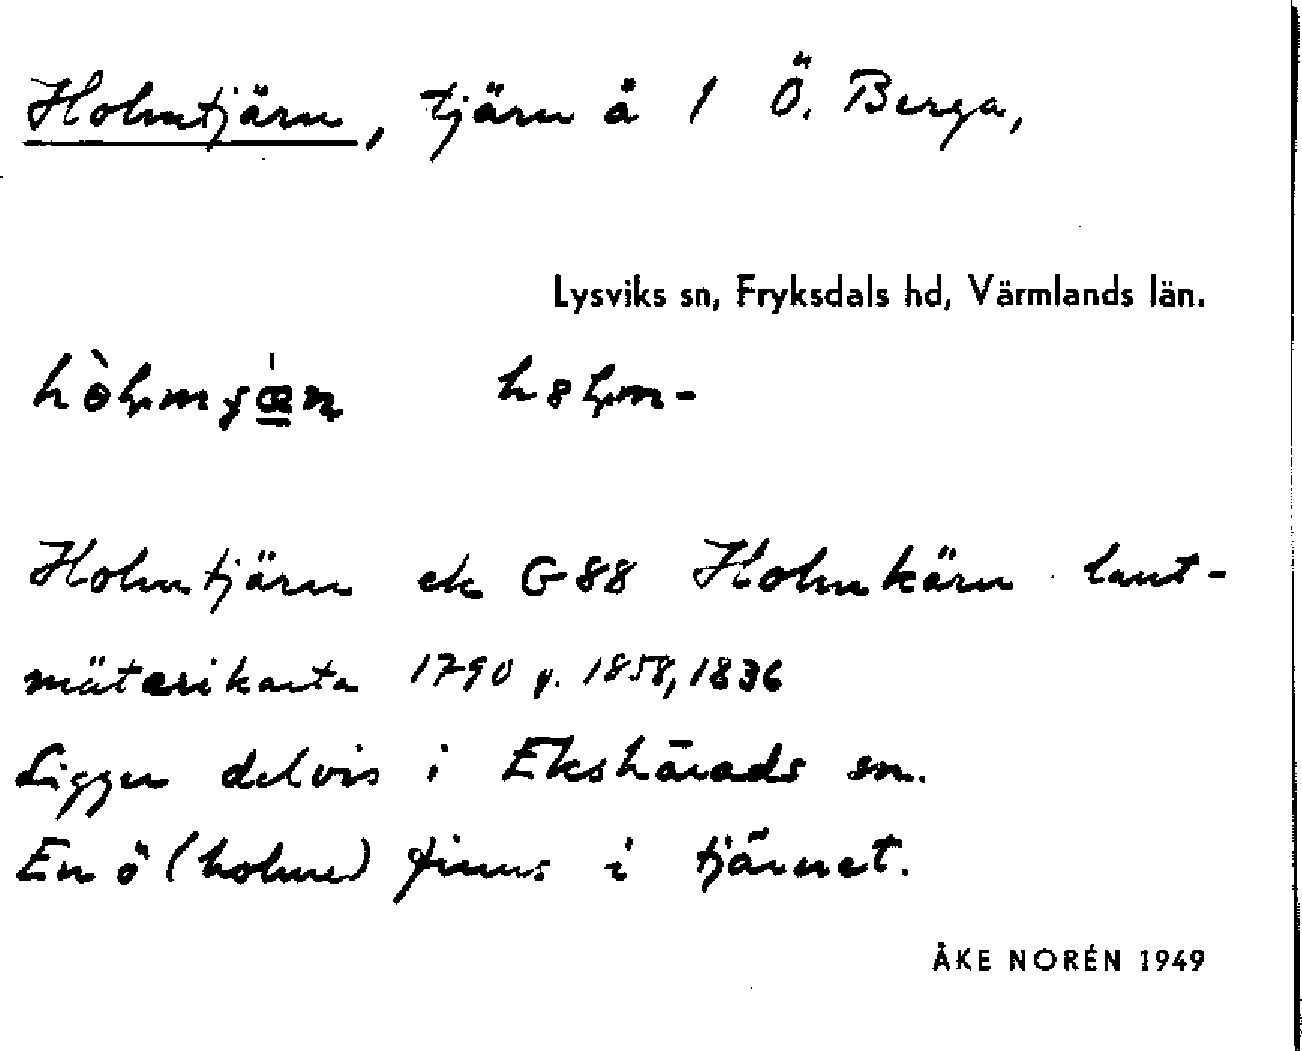 Holmtjärn, tjärn å 1 Ö. Berga,
Lysviks sn, Fryksdals hd, Värmlands län.
Holmtjärn ek G 88 Holmkärn lant-
mäterikarta 1790 p. 1858, 1836
Ligger delvis i Ekshärads sn.
En ö (holme) finns i tjärnet.
ÅKE NORÉN 1949